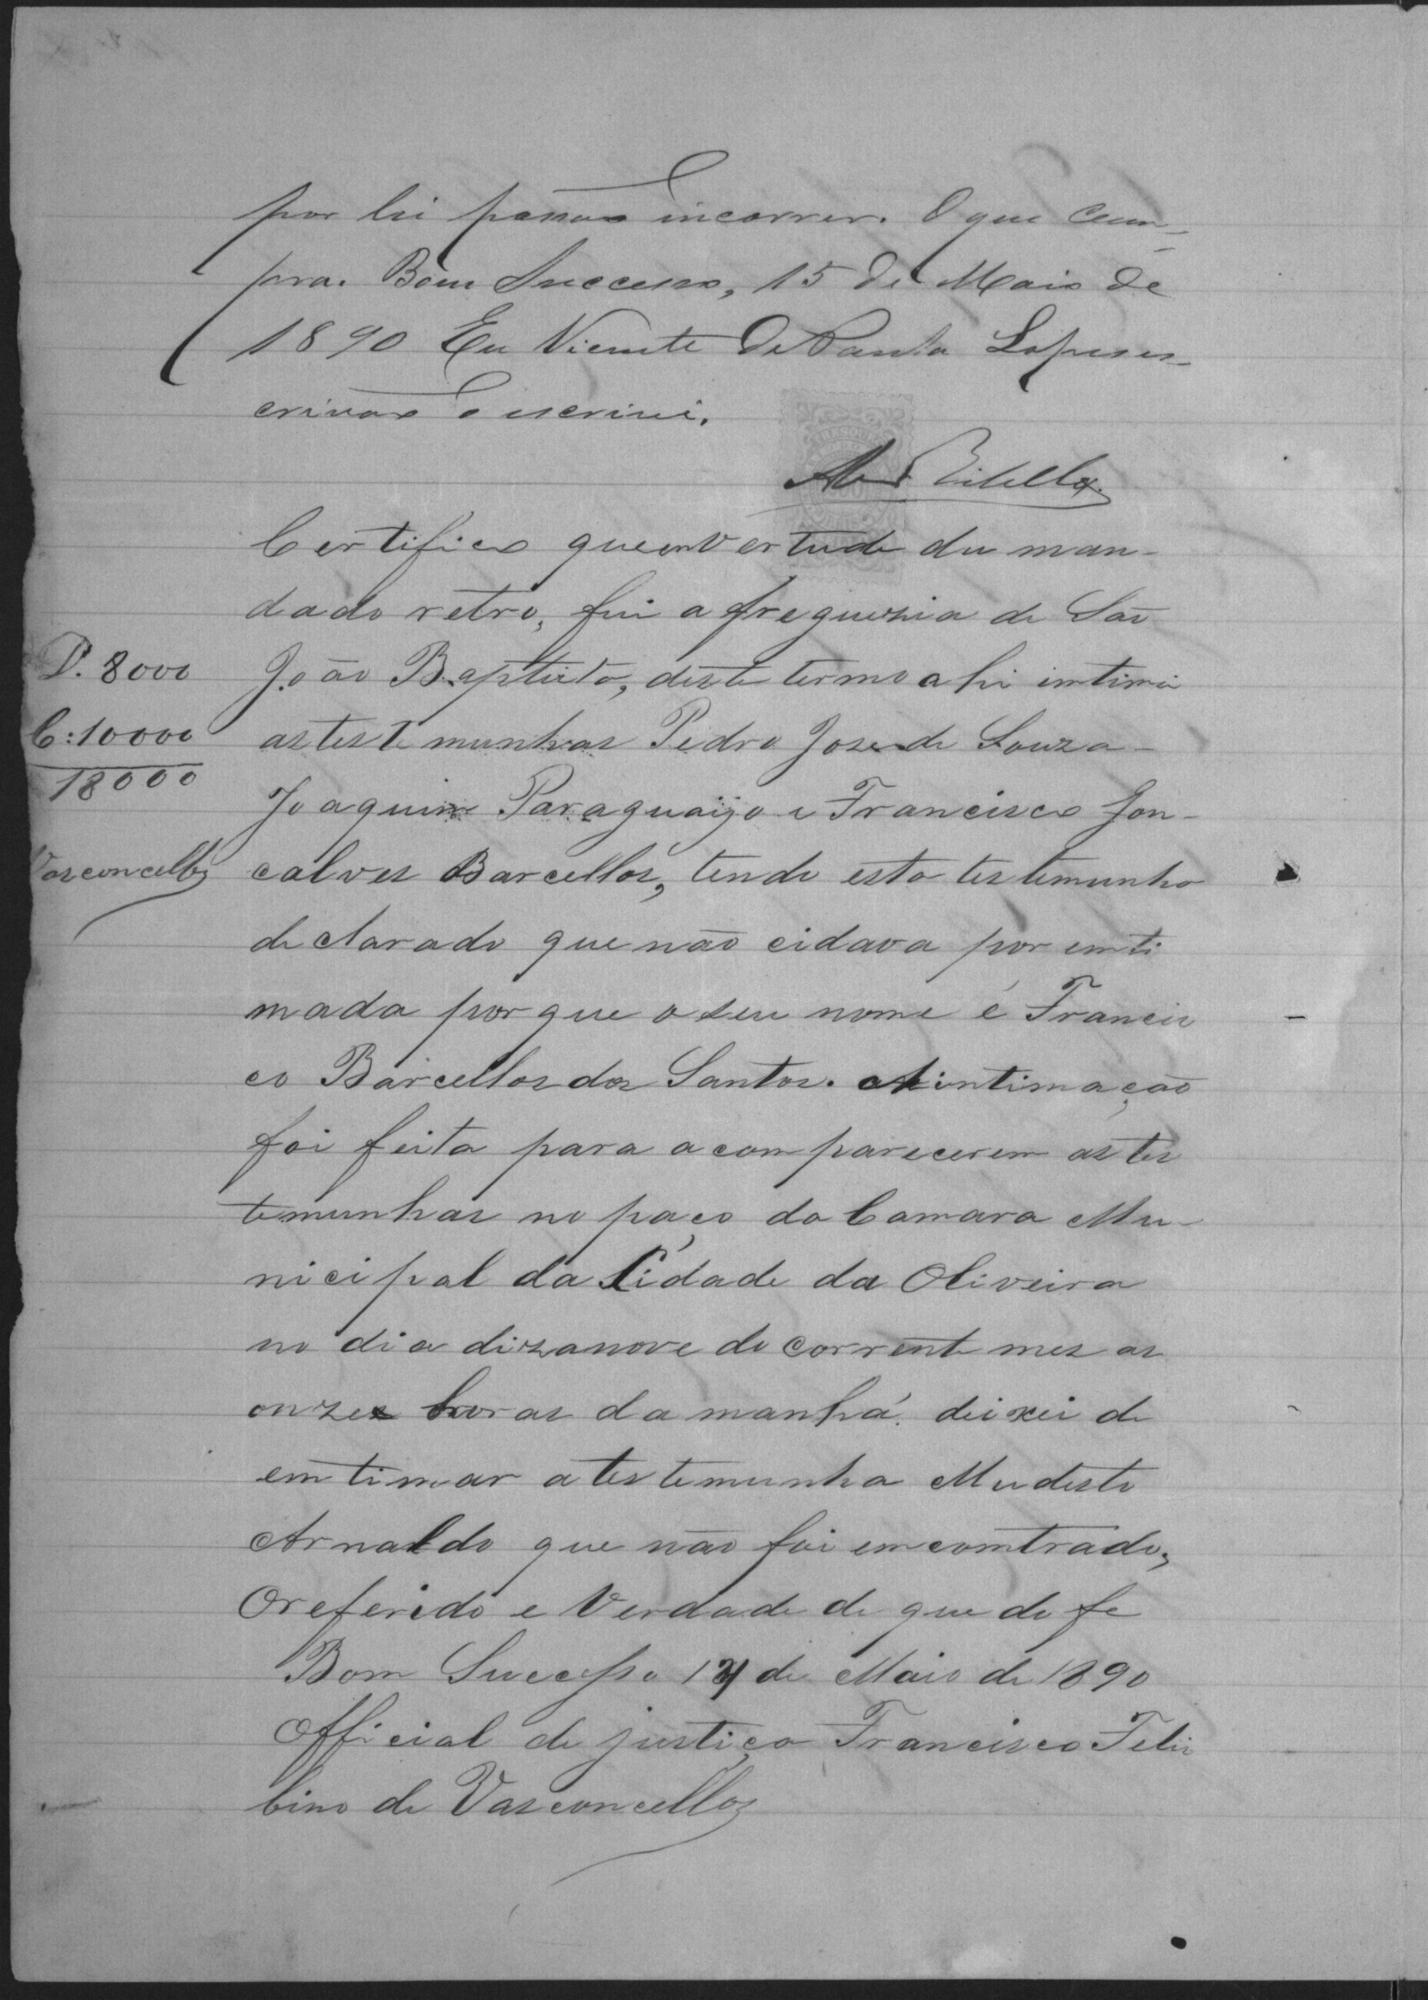 por lei possão incorrer. O que cum-
pra. Bom Successo, 15 de Maio de
1890 Eu Vicente de Paula Lopes es-
crivão o escrivi.
Certifico que em vertude du man-
dado retro, fui a freguezia de São
P. 8000
João Baptista, deste termo ahi intimei
C: 10000
as testemunhas Pedro Jose de Souza
18000
Joaquim Paraguaijo e Francisco Gon-
Vasconcellos
calves Barcellos, tendo esta testemunha
declarado que não cidava por emti
mada por que o seu nome é Francis
co Barcellos dos Santos. A intimação
foi feita para acomparecerem as tes
temunhas no paço da Camara Mu-
nicipal da Cidade da Oliveira
no dia dizanove do corrente mes as
onze horas da manhá. deixei de
emtimar a testemunha Mudesto
Arnaldo que não foi emcomtrado,
O referido e verdade de que do fe
Bom Successo de Maio de 1890
Official de justiça Francisco Felis
bino de Vasconcellos